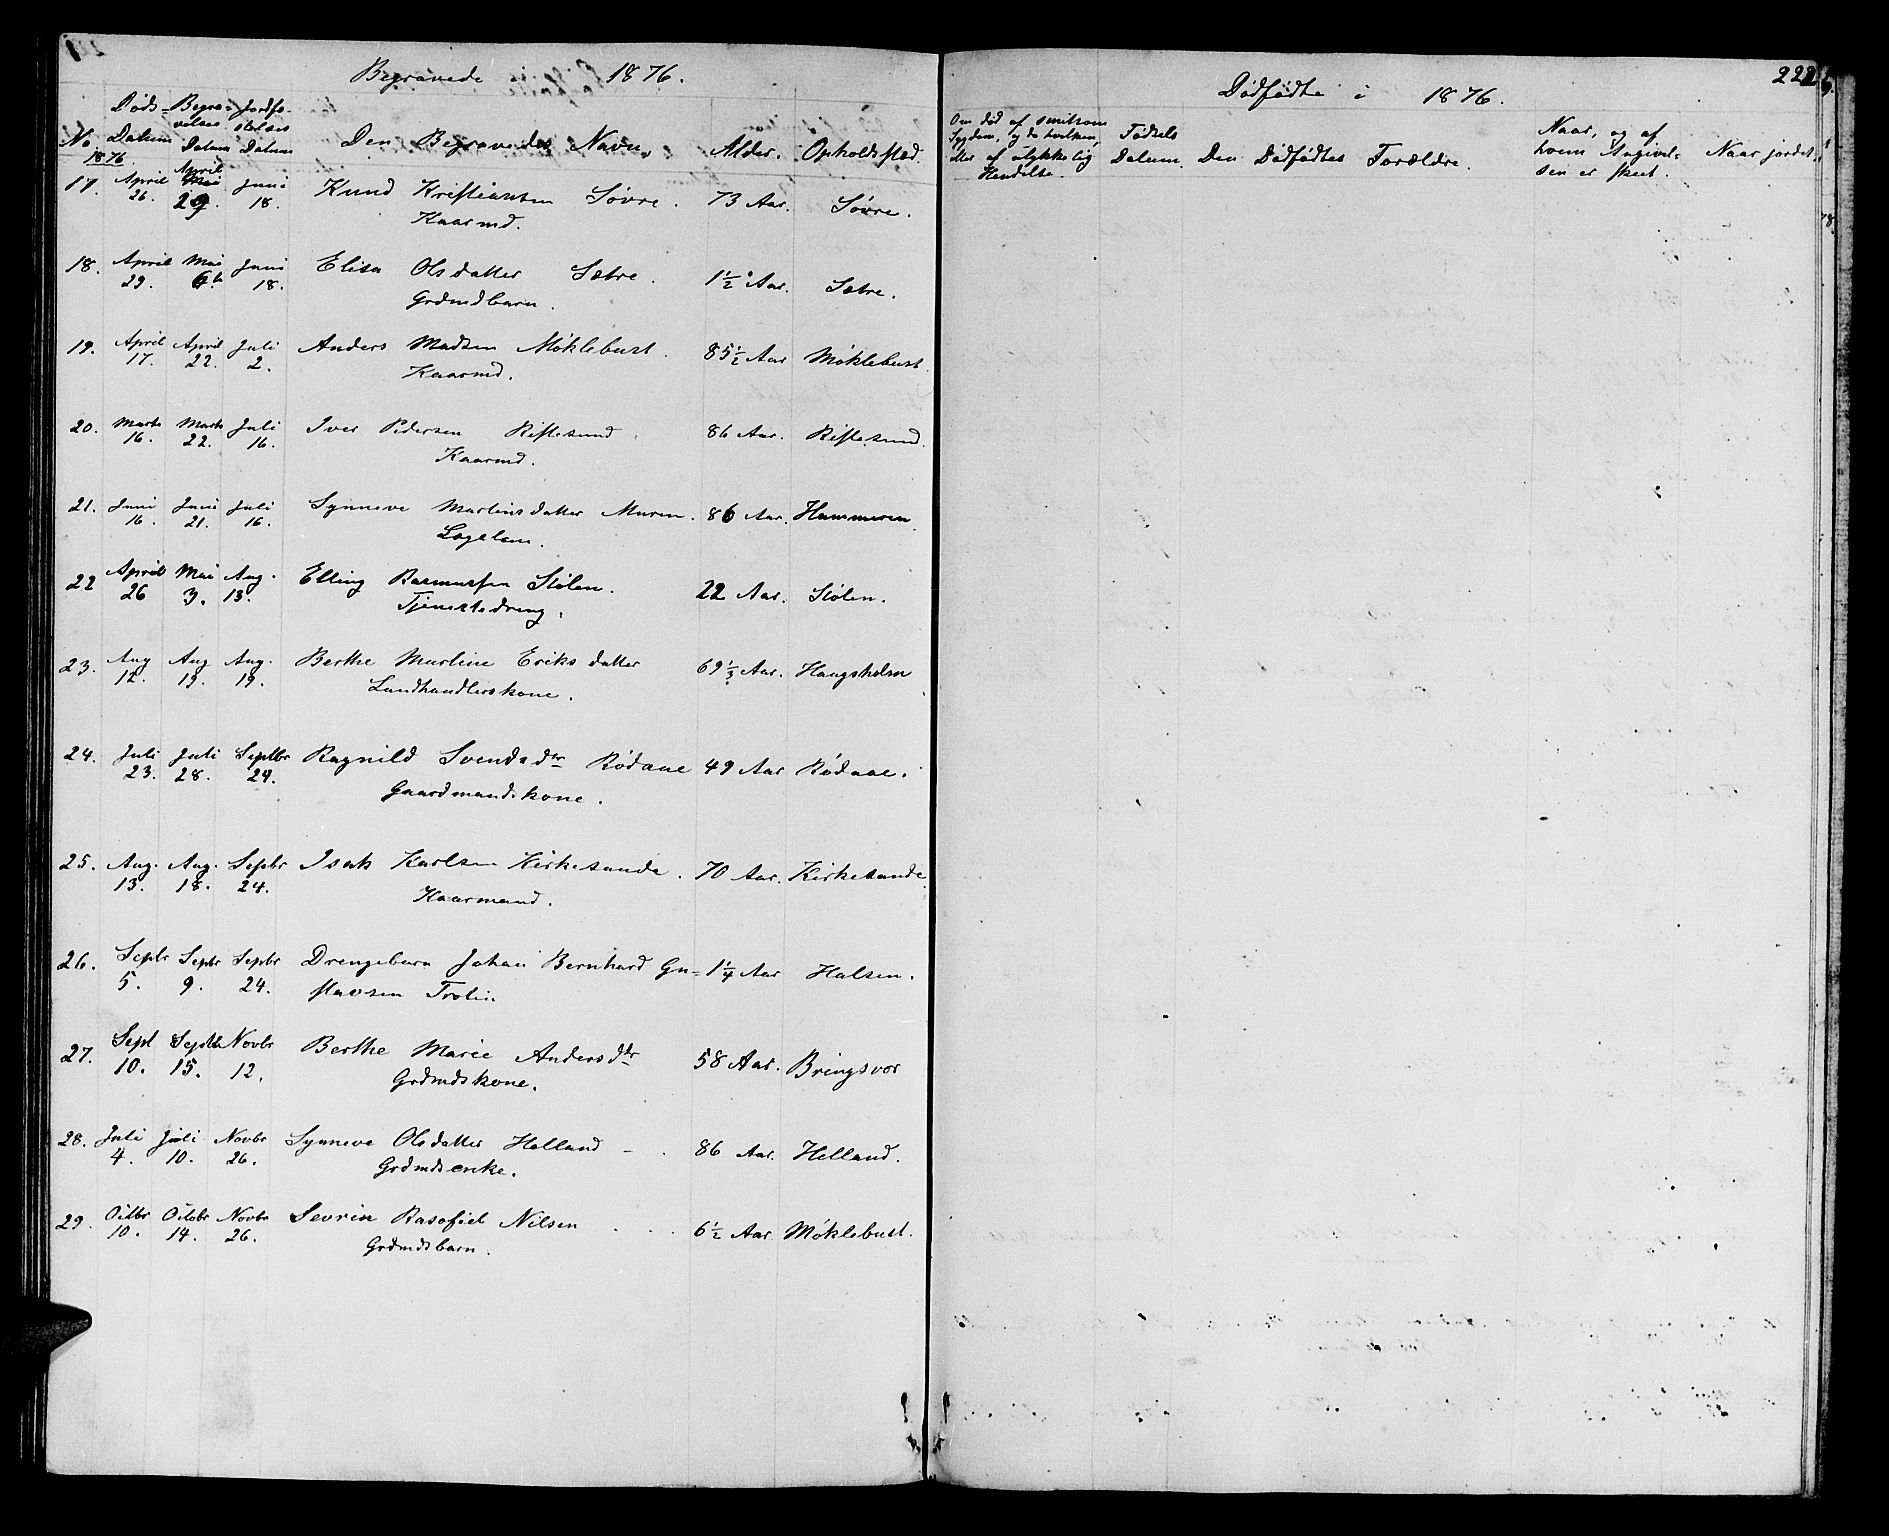 Begravede i 1876.
No. Døds- Datum Begravelses Datum Jordfæstelses Datum Den Begravedes Navn. Alder. Opholdssted.
1876.
17. April 26. April 29. Juni 18. Knud Kristiansen Søvre. 73 Aar. Søvre.
Kaarmd.
18. April 29. Mai 6te Juni 18. Elisa Olsdatter Sætre. 1½ Aar. Sætre.
Grdmdbarn.
19. April 17. April 22. Juli 2. Anders Madsen Møklebust. 85½ Aar Møklebust.
Kaarmd.
20. Marts 16. Marts 22. Juli 16. Iver Pedersen Riflesund. 86 Aar. Riflesund.
Kaarmd.
21. Juni 16. Juni 21. Juli 16. Synneve Martinsdatter Muren. 86 Aar. Hammeren
Lægelem.
22 April 26 Mai 3. Aug. 13. Elling Rasmussen Stølen. 22 Aar. Stølen.
Tjenestedreng.
23. Aug 12. Aug 19. Aug. 19. Berthe Martine Eriksdatter 69⅓ Aar. Haugsholm
Landhandlerskone.
24. Juli 23. Juli 28. Septbr 24. Ragnild Svendsdtr Rødaae 49 Aar Rødaae.
Gaardmandskone.
25. Aug. 13. Aug. 18. Septbr 24. Isak Karlsen Kirkesande. 70 Aar. Kirkesande.
Kaarmand.
26. Septbr 5. Septbr 9. Septbr 24. Drengebarn Johan Bernhard Gu- 1¼ Aar Halsen.
stavsen Trolin
27. Sept 10. Septb 15. Novbr 12. Berthe Marie Andersdtr 58 Aar. Bringsvor
Grdmdskone.
28. Juli 4. Juli 10. Novbr 26. Synneve Olsdatter Helland 86 Aar. Helland.
Grdmdsenke.
29. Octbr 10. Octobr 14. Novbr 26. Sevrin Rasofiel Nilsen 6½ Aar. Møklebust.
Grdmdsbarn.
222
Dødfødte i 1876.
Om død af smitsom Sygdom, og da hvilken, eller af ulykkelig Hændelse. Fødsels Datum. Den Dødfødtes Forældre. Naar, og af hvem Angivelsen er skeet. Naar jordet.